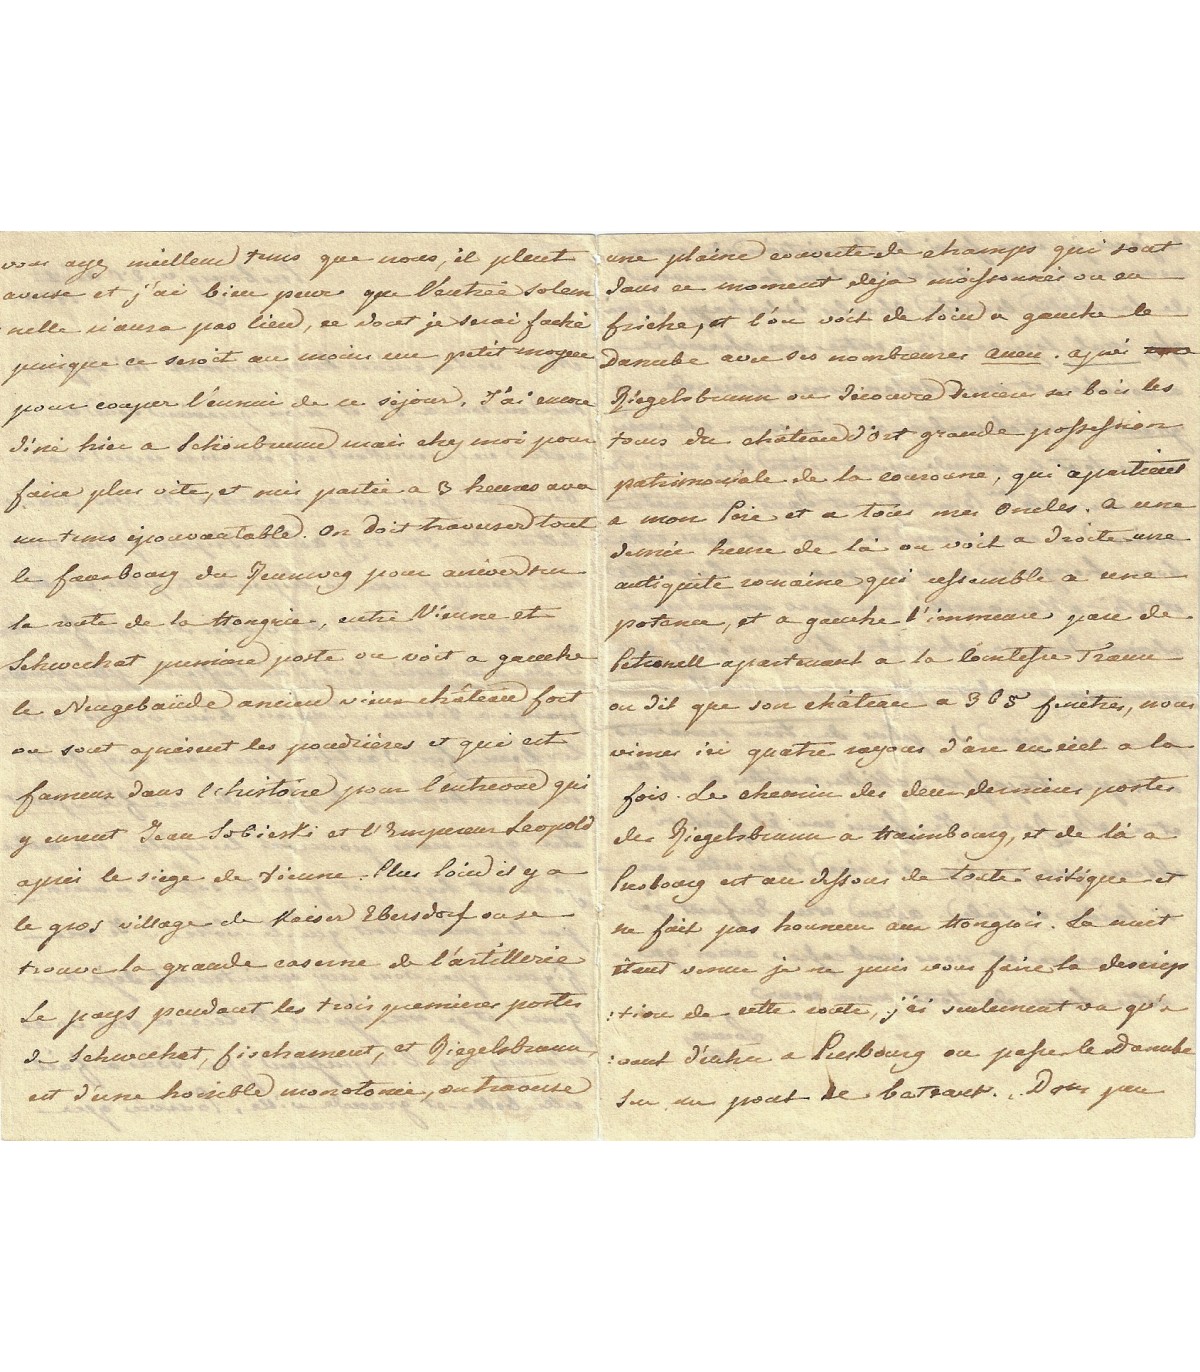 vous ayez meilleur tems que nous, il pleut
averse et j'ai bien peur que l'entrée solem
nelle n'aura pas lieu, ce dont je serai faché
puisque ce seroit au moins un petit moyen
pour couper l'ennui de ce séjour. J'ai encore
diné hier a Schönbrunn mais chez moi pour
faire plus vite, et suis partie a 3 heures avec
un tems épouvantable. On doit traverser tout
le fauxbourg du Rennweg pour arriver sur
la route de la Hongrie, entre Vienne et
Schwechat premiere poste on voit a gauche
le Neugebaüde ancien vieux château fort
ou sont apresent les poudrières et qui est
fameux dans l'histoire pour l'entrevue qui
y eurent Jean Sobieski et l'Empereur Leopold
après le siege de Vienne. Plus loin il y a
le gros village de Kaiser Ebersdorf ou se
trouve la grande caserne de l'artillerie
Le pays pendant les trois premieres postes
de Schwechat, fischament, et Riegelsbrunn,
est d'une horrible monotonie, on traverse
une plaine couverte de champs qui sont
dans ce moment deja moissonnés ou en
friche, et l'on voit de loin a gauche le
Danube avec ses nombreuses auen. après
Riegelsbrunn on decouvre derriere ses bois les
tours du château d'Ort grande possession
patrimoniale de la couronne, qui apartient
a mon Père et a tous mes Oncles. a une
demie heure de là on voit a droite une
antiquité romaine qui ressemble a une
potence, et a gauche l'immense parc de
Petronell apartenant a la Comtesse Traun
on dit que son château a 365 fenêtres, nous
vimes ici quatre rayons d'arc en ciel a la
fois. Le chemin des deux dernieres postes
de Riegelsbrunn a Haimbourg, et de là a
Presbourg est au dessous de toute critique et
ne fait pas honneur aux Hongrois. La nuit
étant venue je ne puis vous faire la descrip
:tion de cette route, j'ai seulement vu qu'a
:vant d'entrer a Presbourg on passe le Danube
sur un pont de bateaux. Dans peu